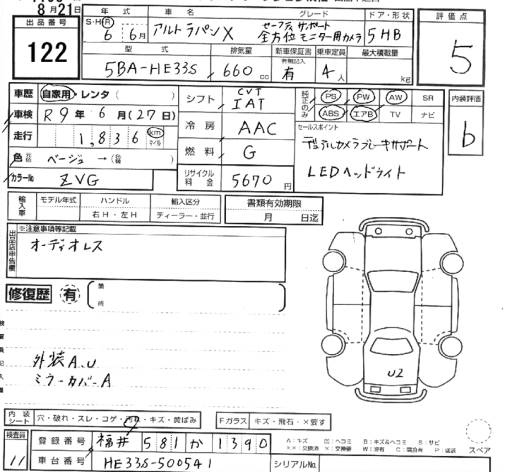 8月21日
出品番号 122
年式 車名 グレード ドア・形状 評価点
S・H・R 6 6月 アルトラパンX セーフティサポート 全方位モニター用カメラ 5HB 5
型式 排気量 新車保証書 乗車定員 最大積載量
5BA-HE33S 660cc 有 4人 kg
車歴 自家用・レンタ( ) シフト CVT IAT 純正のみ PS PW AW SR 内装評価
車検 R9年6月(27日) ABS エアB TV ナビ b
走行 1,836 km マイル 冷房 AAC セールスポイント
デュアルカメラブレーキサポート
色 ベージュ→ 燃料 G LEDヘッドライト
カラーNo ZVG リサイクル料金 5670円
輸入車 モデル年式 ハンドル 輸入区分 書類有効期限
右H・左H ディーラー・並行 月 日迄
※注意事項等記載
オーディオレス
修復歴 有
外装A,U
ミラーカバーA
U2
内装シート 穴・破れ・スレ・コゲ・汚れ・キズ・黄ばみ Fガラス キズ・飛石・×要す
検査員 11 登録番号 福井581か1390
車台番号 HE33S-500541 シリアルNo.
スペア